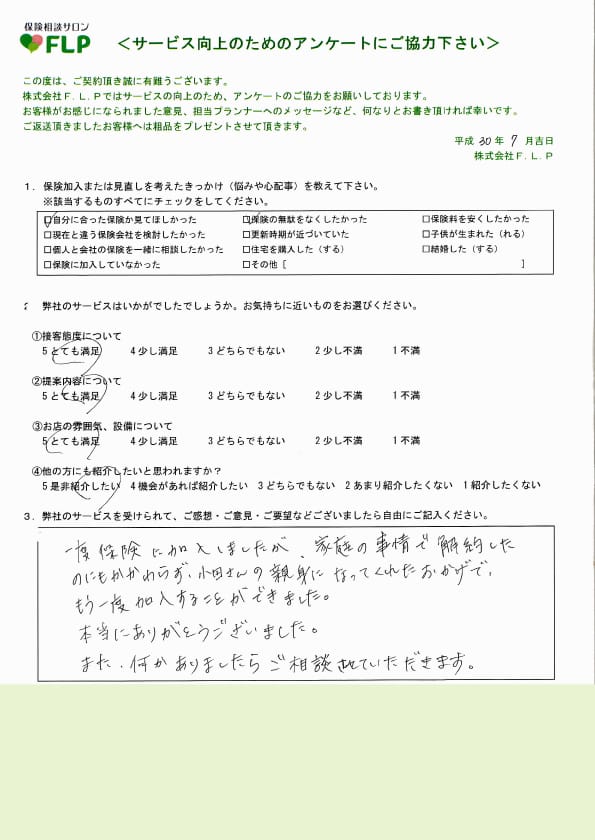 保険相談サロン
FLP
＜サービス向上のためのアンケートにご協力下さい＞
この度は、ご契約頂き誠に有難うございます。
株式会社Ｆ.Ｌ.Ｐではサービスの向上のため、アンケートのご協力をお願いしております。
お客様がお感じになられました意見、担当プランナーへのメッセージなど、何なりとお書き頂ければ幸いです。
ご返送頂きましたお客様へは粗品をプレゼントさせて頂きます。
平成 30 年 7 月吉日
株式会社Ｆ.Ｌ.Ｐ
１．保険加入または見直しを考えたきっかけ（悩みや心配事）を教えて下さい。
※該当するものすべてにチェックをしてください。
☑自分に合った保険か見てほしかった ☑保険の無駄をなくしたかった □保険料を安くしたかった
□現在と違う保険会社を検討したかった □更新時期が近づいていた □子供が生まれた（れる）
□個人と会社の保険を一緒に相談したかった □住宅を購入した（する） □結婚した（する）
□保険に加入していなかった □その他［ ］
２ 弊社のサービスはいかがでしたでしょうか。お気持ちに近いものをお選びください。
①接客態度について
５とても満足 ４少し満足 ３どちらでもない ２少し不満 １不満
②提案内容について
５とても満足 ４少し満足 ３どちらでもない ２少し不満 １不満
③お店の雰囲気、設備について
５とても満足 ４少し満足 ３どちらでもない ２少し不満 １不満
④他の方にも紹介したいと思われますか？
５是非紹介したい ４機会があれば紹介したい ３どちらでもない ２あまり紹介したくない １紹介したくない
３．弊社のサービスを受けられて、ご感想・ご意見・ご要望などございましたら自由にご記入ください。
一度保険に加入しましたが、家庭の事情で解約した
のにもかかわらず、小田さんの親身になってくれたおかげで、
もう一度加入することができました。
本当にありがとうございました。
また、何かありましたらご相談させていただきます。